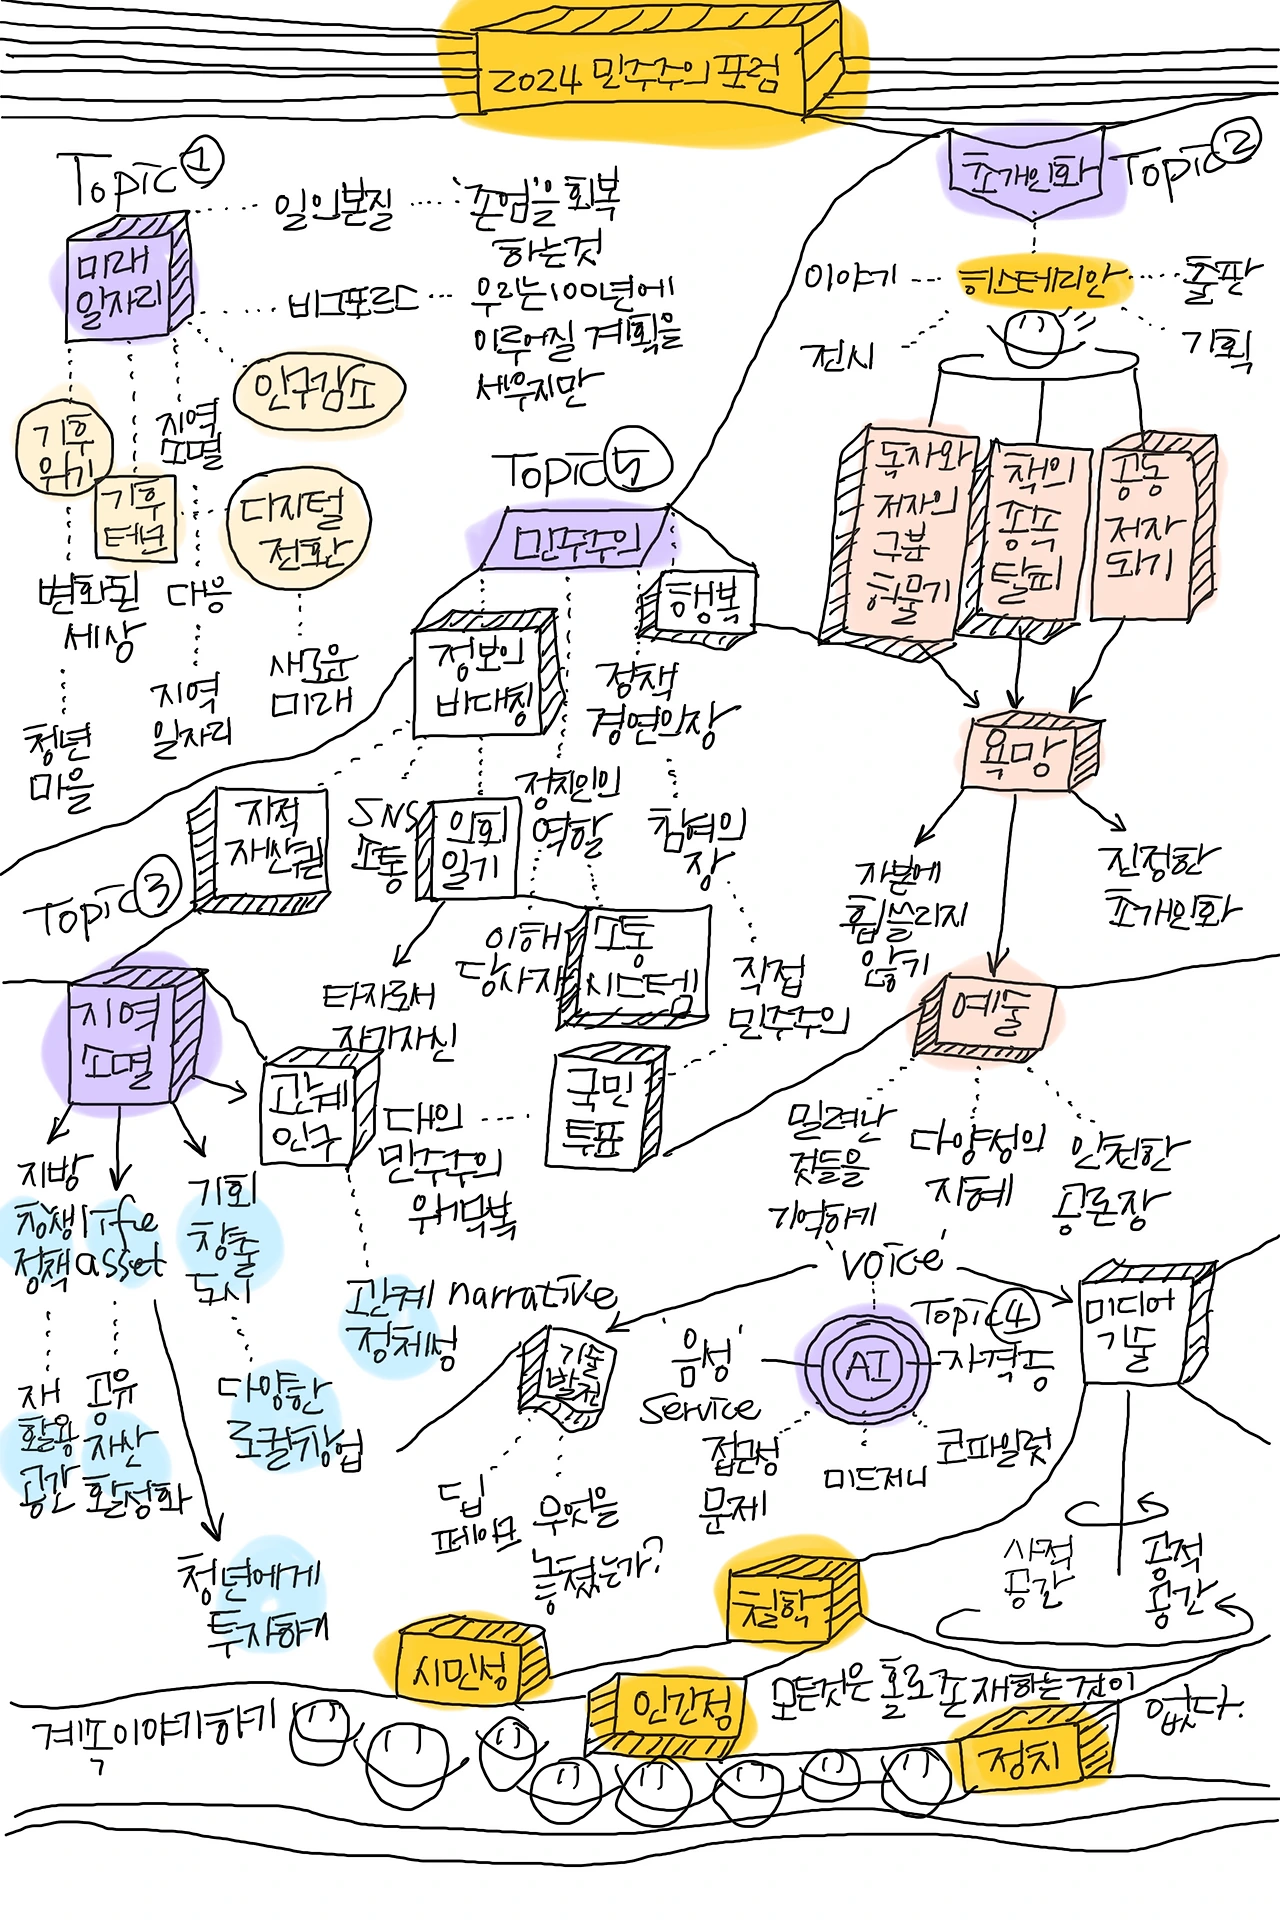 2024 민주주의 포럼
Topic ①
미래
일자리
일의본질
'존엄'을 회복
하는것
비그포르스
우리는 100년에
이루어질 계획을
세우지만
인구감소
기후
위기
지역
소멸
기후
테크
디지털
전환
변화된
세상
대응
새로운
미래
지역
일자리
청년
마을
Topic ②
초개인화
이야기
히스테리안
출판
전시
기획
독자와
저자의
구분
허물기
책의
종죽
탈피
공동
저자
되기
욕망
자본에
휩쓸리지
않기
진정한
초개인화
예술
밀려난
것들을
기억하기
다양성의
지혜
안전한
공론장
Topic ⑤
민주주의
행복
정보의
비대칭
정책
경연의장
지적
재산권
SNS
소통
의회
일기
정치인의
역할
참여의
장
타자로서
자기자신
이해
당사자
소통
시스템
직접
민주주의
국민
투표
대의
민주주의
위기극복
Topic ③
지역
소멸
관계
인구
지방
창생
정책
life
asset
기회
창출
도시
관계 narrative
정체성
재
활용
공간
고유
자산
활성화
다양한
로컬창업
청년에게
투자하기
'voice'
Topic ④
AI
음성
service
자격증
접근성
문제
미드저니
코파일럿
기술
발전
딥
페이크
무엇을
놓쳤는가?
미디어
기술
사적
공간
공적
공간
철학
시민성
인간성
모든것은 홀로 존재하는 것이
없다.
정치
계속이야기하기